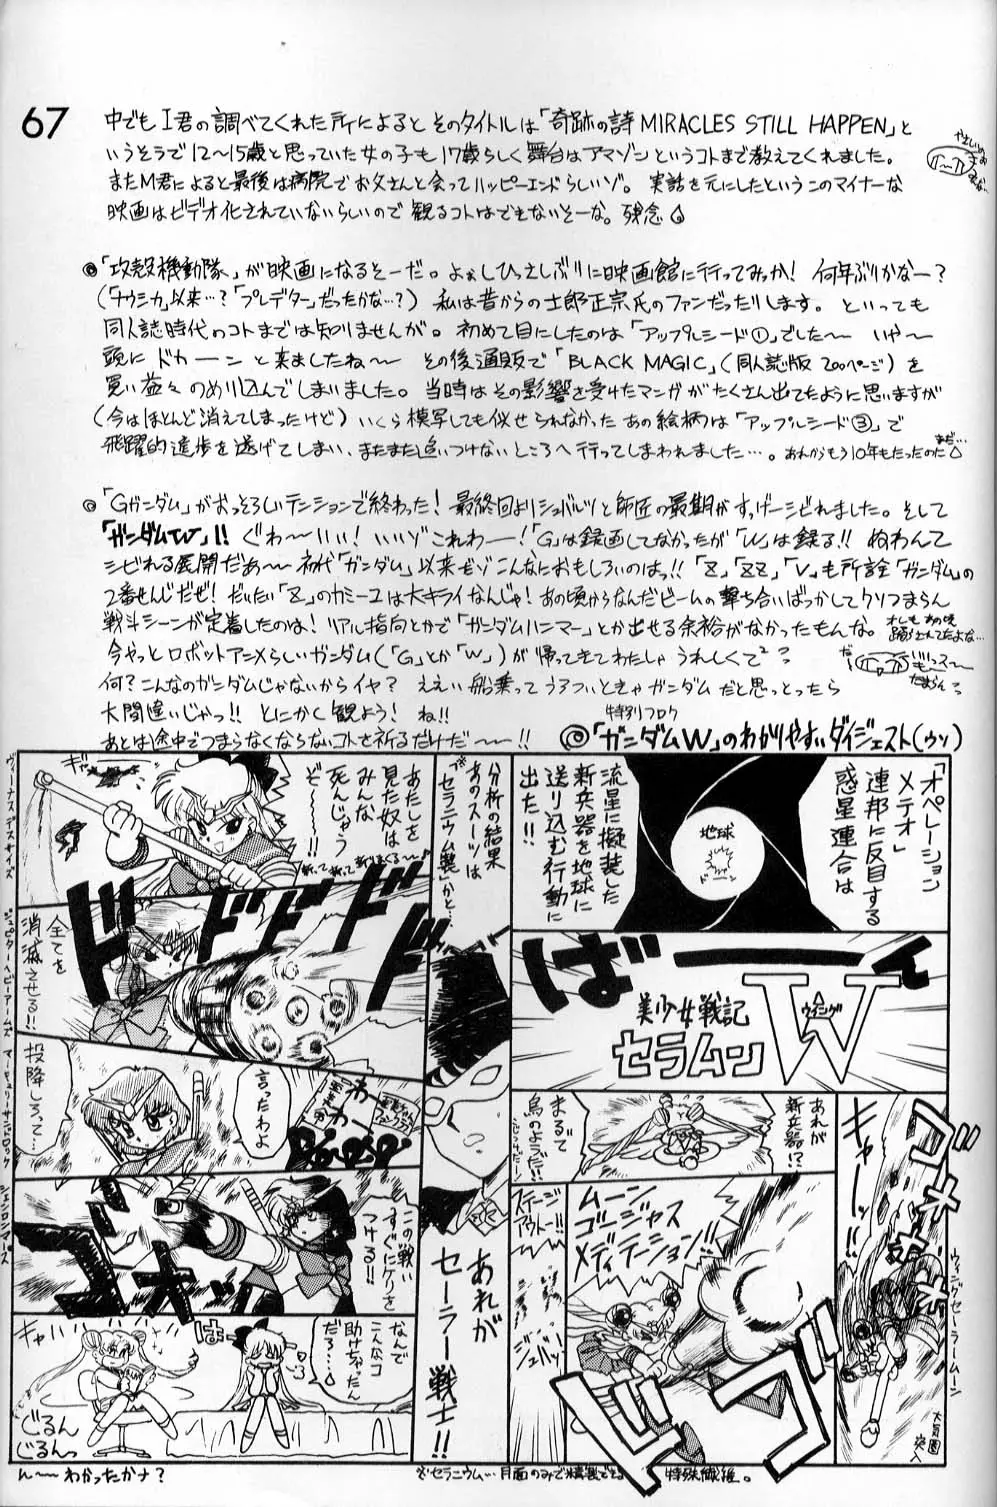 67
中でもI君の調べてくれた所によると そのタイトルは「奇跡の詩 MIRACLES STILL HAPPEN」と
いうそうで12〜15歳と思っていた女の子も17歳らしく舞台はアマゾンというコトまで教えてくれました。
またM君によると最後は病院でお父さんと会ってハッピーエンドらしいゾ。 実話を元にしたというこのマイナーな
映画はビデオ化されていないらしいので観るコトはできないそーな。残念
◎「攻殻機動隊」が映画になるそーだ。よぉしひっさしぶりに映画館に行ってみっか! 何年ぶりかなー?
(「ナウシカ」以来…?「プレデター」だったかな…?) 私は昔からの士郎正宗氏のファンだったりします。といっても
同人誌時代のコトまでは知りませんが。初めて目にしたのは「アップルシード①」でした〜 いや〜
頭にドカーンと来ましたね〜 その後通販で「BLACK MAGIC」(同人誌版 200ページ)を
買い益々のめり込んでしまいました。当時はその影響を受けたマンガがたくさん出てたように思いますが
(今はほとんど消えてしまったけど) いくら模写しても似せられなかったあの絵柄は「アップルシード③」で
飛躍的進歩を遂げてしまい、またまた追いつけないところへ行ってしまわれました…。あれからもう10年もたったのだ
◎「Gガンダム」がおっそろしいテンションで終わった! 最終回よりシュバルツと師匠の最期がすっげーシビれました。そして
「ガンダムW」!! ぐわ〜いい! いいゾこれわー!「G」は録画してなかったが「W」は録る!! ぬわんて
シビれる展開だぁ〜 初代「ガンダム」以来だゾこんなにおもしろいのはっ!!「Z」,「ZZ」,「V」も所詮「ガンダム」の
2番せんじだぜ! だいたい「Z」のカミーユは大キライなんじゃ! あの頃からなんだビームの撃ち合いばっかしてクソつまらん
戦斗シーンが定着したのは! リアル指向とかで「ガンダムハンマー」とか出せる余裕がなかったもんな。
今やっとロボットアニメらしいガンダム(「G」とか「W」)が帰ってきてわたしゃうれしくて
何? こんなのガンダムじゃないからイヤ? ええい船乗ってうろついときゃガンダムだと思っとったら
大間違いじゃっ!! とにかく観よう! ね!!
あとは途中でつまらなくならないコトを祈るだけだ〜!!
特別フロク
◎「ガンダムW」のわかりやすいダイジェスト(ウソ)
「オペレーション
メテオ」
連邦に反目する
惑星連合は
地球
ドーン
流星に擬装した
新兵器を地球に
送り込む行動に
出た!!
ばーーん
美少女戦記
セラムン
W
ウイング
あれが
新兵器!?
まるで
鳥のようだ!!
キャー
ゴオオオ
ウィング・セーラームーン
大気圏
突入
ムーン
ゴージャス
メディテーション!!
ステージ
アウトー!!
ジュバッ
ドゴ
分析の結果
あのスーツは
※セラニウム製とか…
あれが
セーラー戦士!!
ギャー
あたしを
見た奴は
みんな
死んじゃう
ぞ〜!!
ヴィーナスデスサイズ
ドドドド
全てを
消滅させる!!
ジュピターヘビーアームズ
投降しろって…
言ったわよ
わー
わー
マーキュリーサンドロック
ゴオッ
この戦い
すぐにケリを
つける!!
シェンロンマーズ
キャハ
ぐるん
ぐるんっ
はー
なんで
こんなコ
助けちゃったん
だろ…
ん〜わかったかナ?
※セラニウム…月面のみで精製できる 特殊繊維。